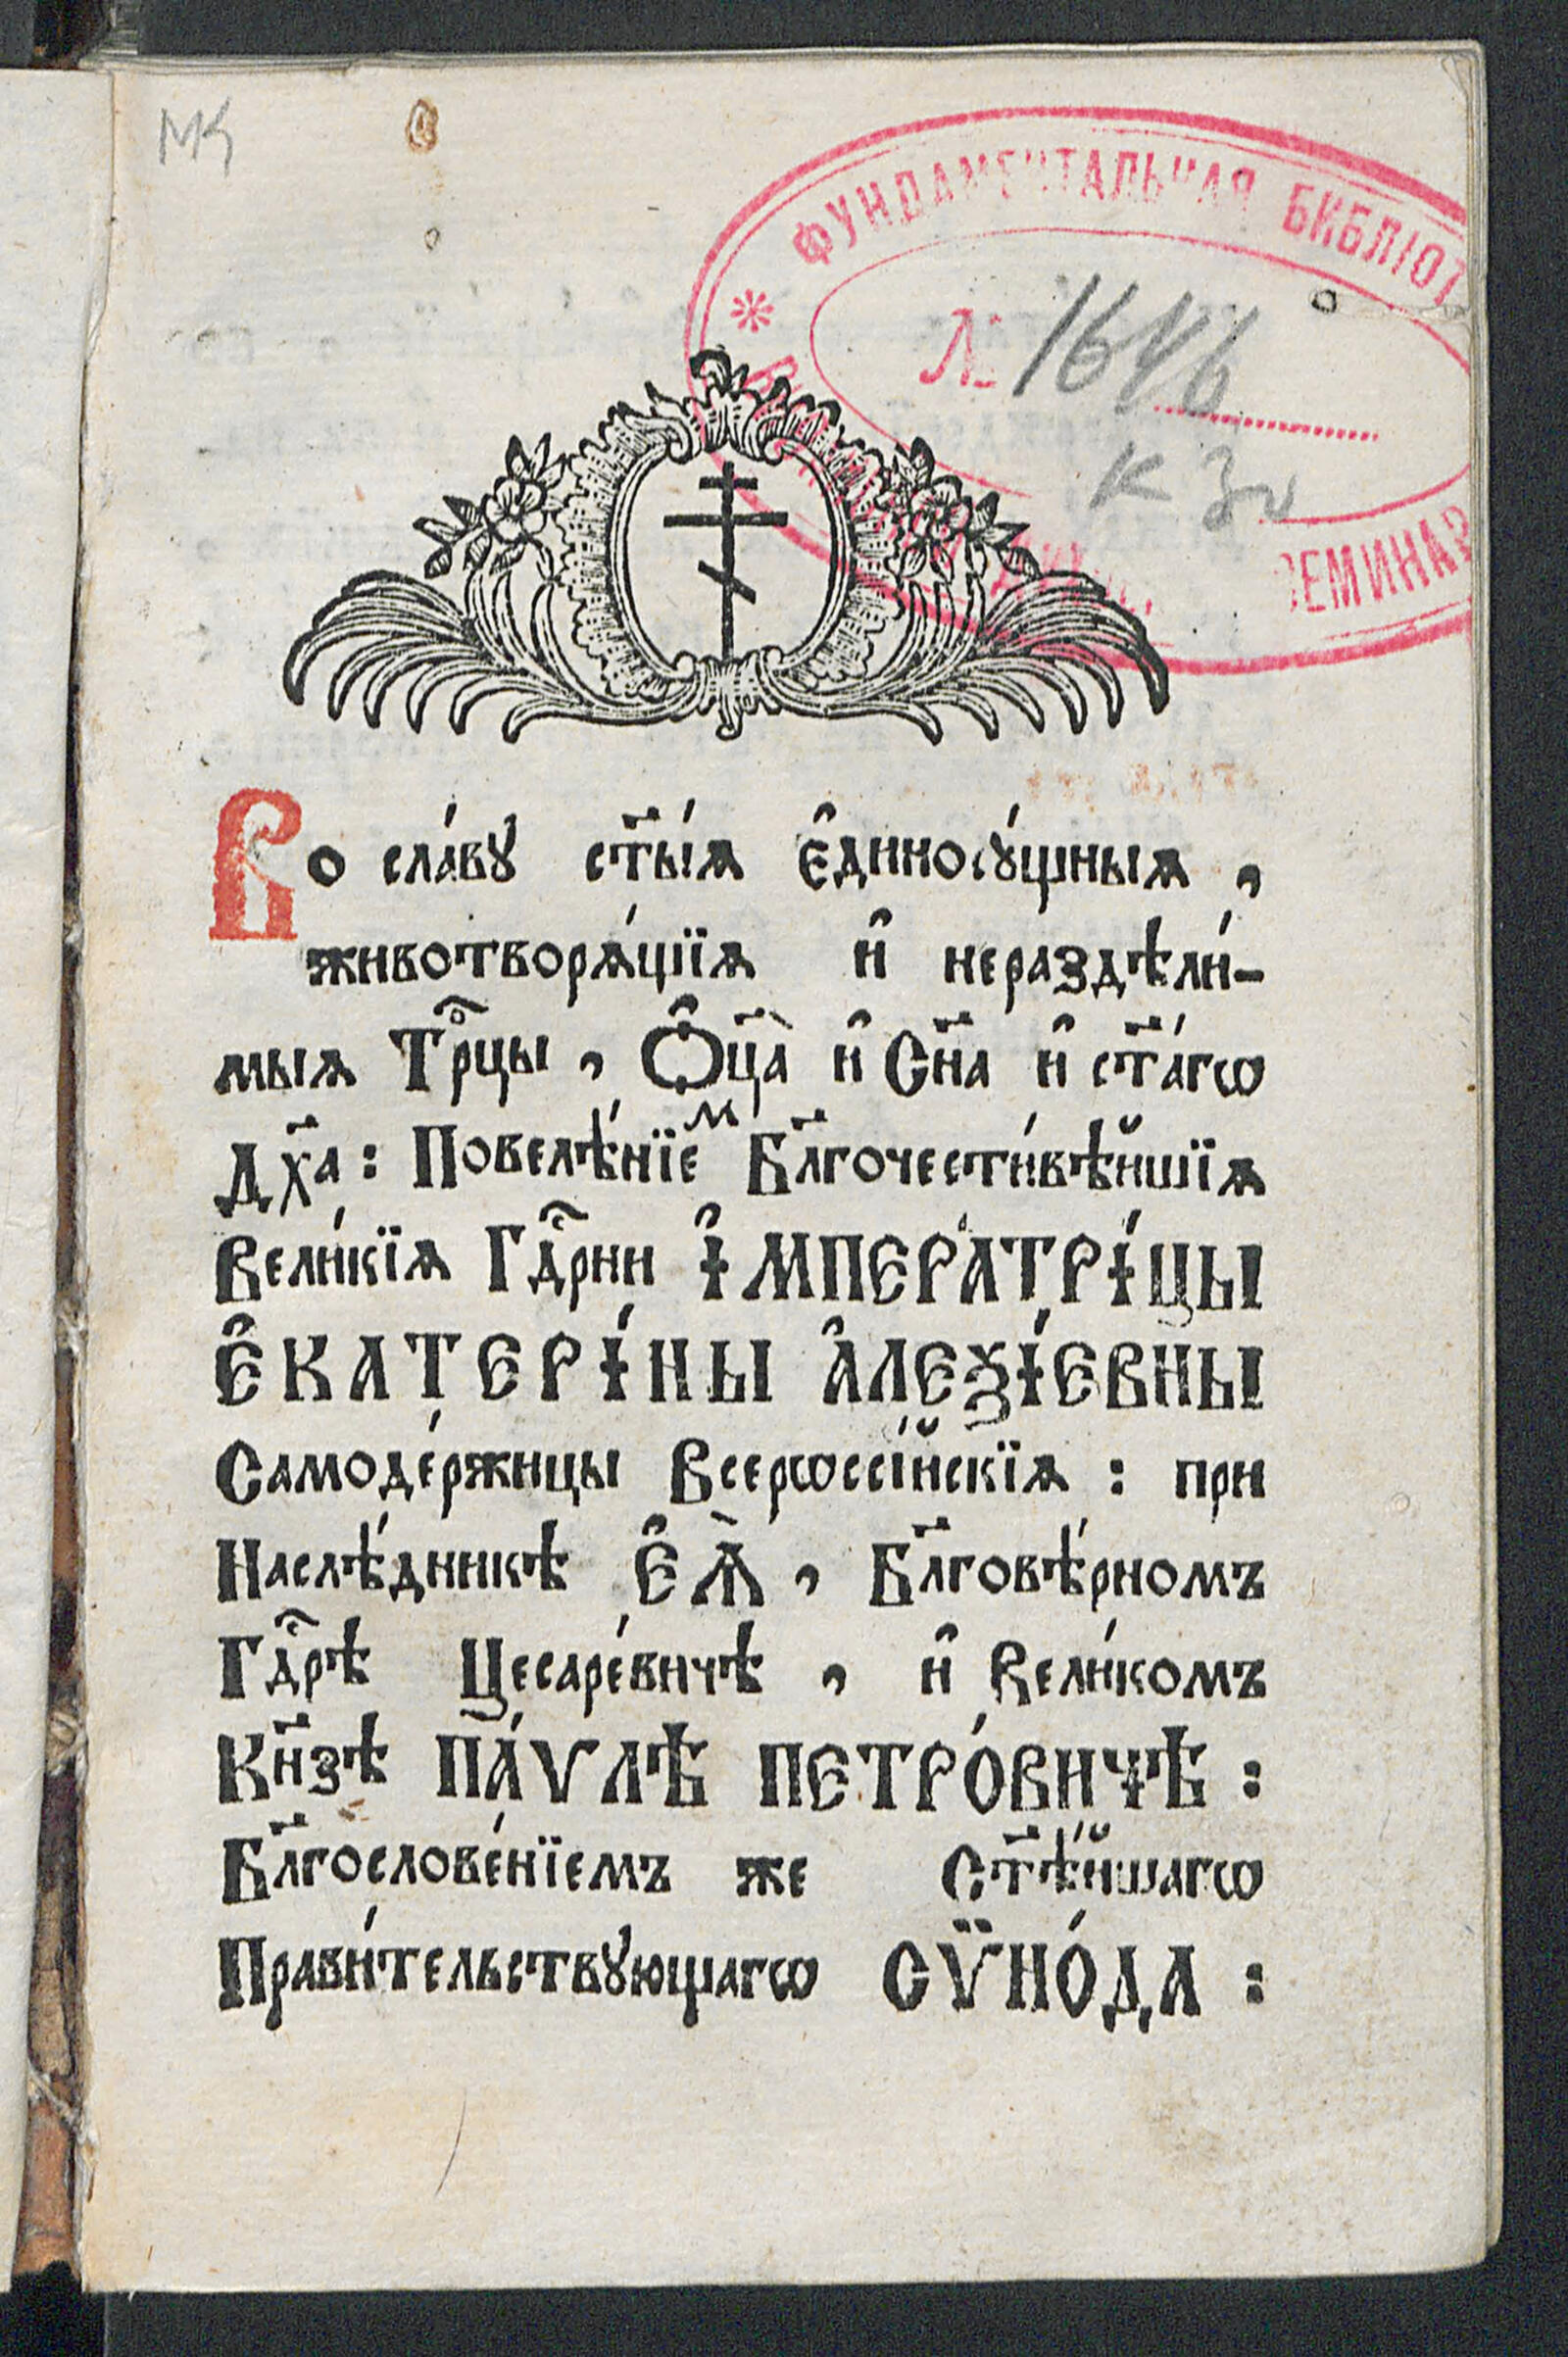 МК
ФУНДАМЕНТАЛЬНАЯ БИБЛІОТ
№ 1646
К 3
СЕМИНАР
Во сла́вꙋ ст҃ы́ѧ є҆диносꙋ́щныѧ ,
животворѧ́щїѧ и҆ нераздѣли́-
мыѧ Трⷪ҇цы , Ѻ҆ц҃а̀ и҆ Сн҃а и҆ ст҃а́гѡ
Дх҃а : Повелѣ́нїеⷨ Бл҃гочести́вѣйшїѧ
Вели́кїѧ Гдⷭ҇рни І҆МПЕРАТРІ́ЦЫ
Є҆КАТЕРІ́НЫ А҆ЛЕѮІ́ЕВНЫ
Самоде́ржицы Всерѡссі́йскїѧ : при
Наслѣ́дникѣ Є҆Ѧ̀ , Бл҃говѣ́рномъ
Гдⷭ҇рѣ Цесаре́вичѣ , и҆ Вели́комъ
Кн҃зѣ ПА́ѴЛѢ ПЕТРО́ВИЧѢ :
Бл҃гослове́нїемъ же Ст҃ѣ́йшагѡ
Прави́тельствꙋющагѡ СѶНО́ДА :